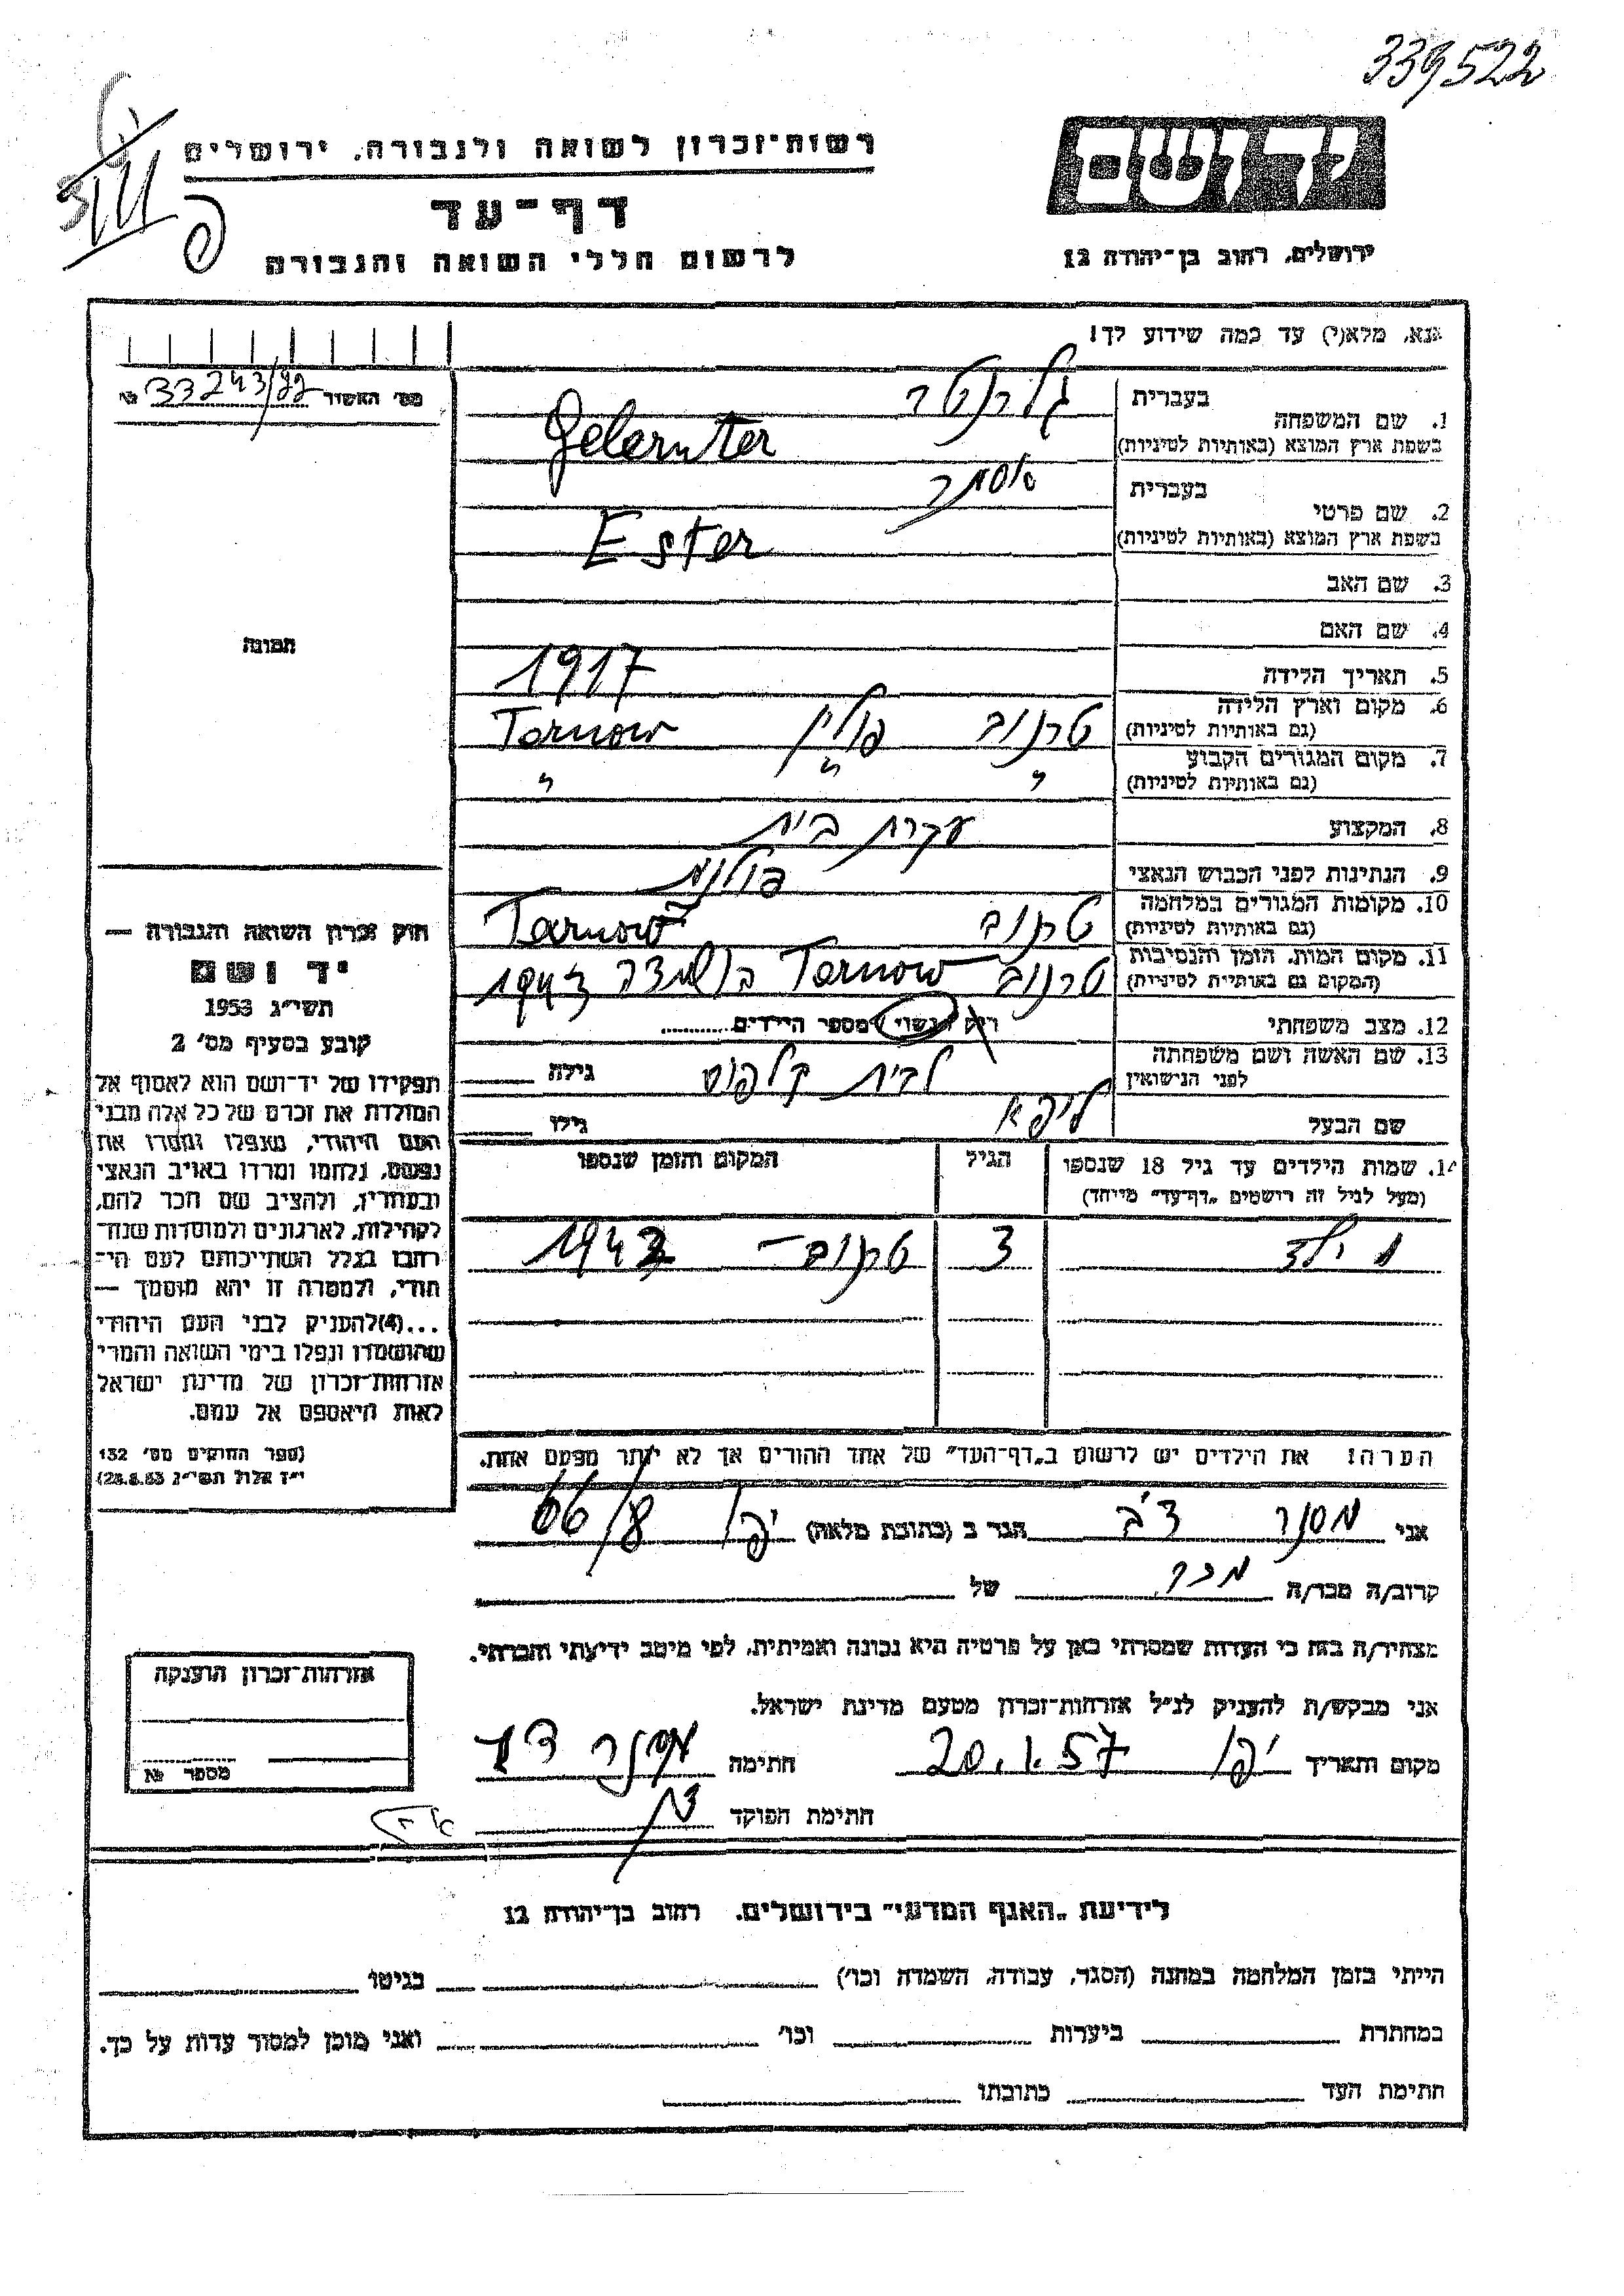 339522
רשות־זכרון לשואה ולגבורה, ירושלים
יד ושם
דף־עד
לרשום חללי השואה והגבורה
ירושלים, רחוב בן־יהודה 12
נא, מלא(י) עד כמה שידוע לך!
מס' האשור 33243/92 №
1. שם המשפחה
בעברית גלרנטר
בשפת ארץ המוצא (באותיות לטיניות) Gelernter
2. שם פרטי
בעברית אסתר
בשפת ארץ המוצא (באותיות לטיניות) Ester
3. שם האב
4. שם האם
5. תאריך הלידה 1917
6. מקום וארץ הלידה
(גם באותיות לטיניות) טרנוב פולין Tarnow
7. מקום המגורים הקבוע
(גם באותיות לטיניות) " " "
8. המקצוע עקרת בית
9. הנתינות לפני הכבוש הנאצי פולנית
10. מקומות המגורים במלחמה
(גם באותיות לטיניות) טרנוב Tarnow
11. מקום המות, הזמן והנסיבות
(המקום גם באותיות לטיניות) טרנוב Tarnow בהשמדה 1943
12. מצב משפחתי רוק נשוי מספר הילדים
13. שם האשה ושם משפחתה
לפני הנישואין לבית גילה
שם הבעל ליפא גילו
14. שמות הילדים עד גיל 18 שנספו
(מעל לגיל זה רושמים „דף־עד" מיוחד)
הגיל
המקום והזמן שנספו
ילד 3 טרנוב – 1942
הערה! את הילדים יש לרשום ב„דף־העד" של אחד ההורים אך לא יותר מפעם אחת.
תמונה
חוק זכרון השואה והגבורה —
יד ושם
תשי"ג 1953
קובע בסעיף מס' 2
תפקידו של יד־ושם הוא לאסוף אל
המולדת את זכרם של כל אלה מבני
העם היהודי, שנפלו ומסרו את
נפשם, נלחמו ומרדו באויב הנאצי
ובעוזריו, ולהציב שם וזכר להם,
לקהילות, לארגונים ולמוסדות שנח־
רבו בגלל השתייכותם לעם הי־
הודי, ולמטרה זו יהא מוסמך —
...(4) להעניק לבני העם היהודי
שהושמדו ונפלו בימי השואה והמרי
אזרחות־זכרון של מדינת ישראל
לאות היאספם אל עמם.
(ספר החוקים מס' 132
י"ז אלול תשי"ג 28.8.53)
אני מסנר דב הגר ב (כתובת מלאה) יפו 66/8
קרוב/ה מכר/ה מכר של
מצהיר/ה בזה כי העדות שמסרתי כאן על פרטיה היא נכונה ואמיתית, לפי מיטב ידיעתי והכרתי.
אני מבקש/ת להעניק לנ"ל אזרחות־זכרון מטעם מדינת ישראל.
מקום ותאריך יפו 20.1.57 חתימה מסנר דב
חתימת הפוקד
אזרחות־זכרון הוענקה
מספר №
לידיעת „האגף המדעי" בירושלים. רחוב בן־יהודה 12
הייתי בזמן המלחמה במחנה (הסגר, עבודה, השמדה וכו') בגיטו
במחתרת ביערות וכו' ואני מוכן למסור עדות על כך.
חתימת העד כתובתו